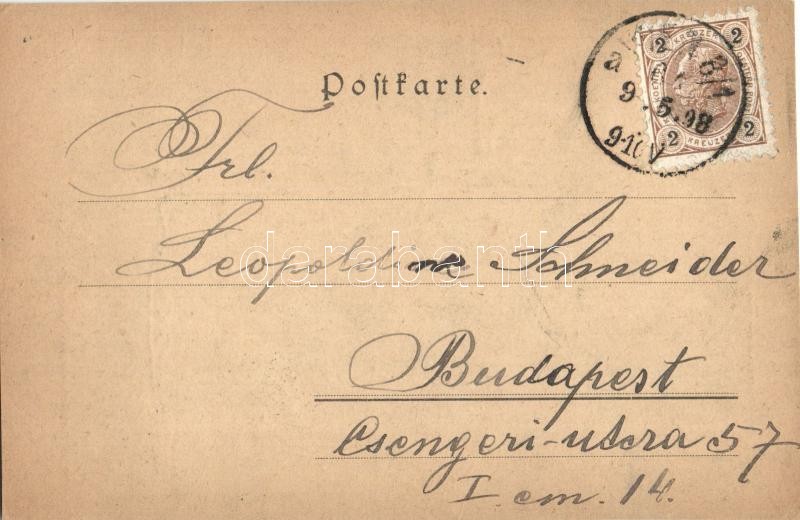 Postkarte.
2 KREUZER 2
9.5.98
9-10V
2 KREUZER 2
Frl.
Leopoldine Schneider
darabanth
Budapest
Csengeri-utcza 57
I. em. 14.